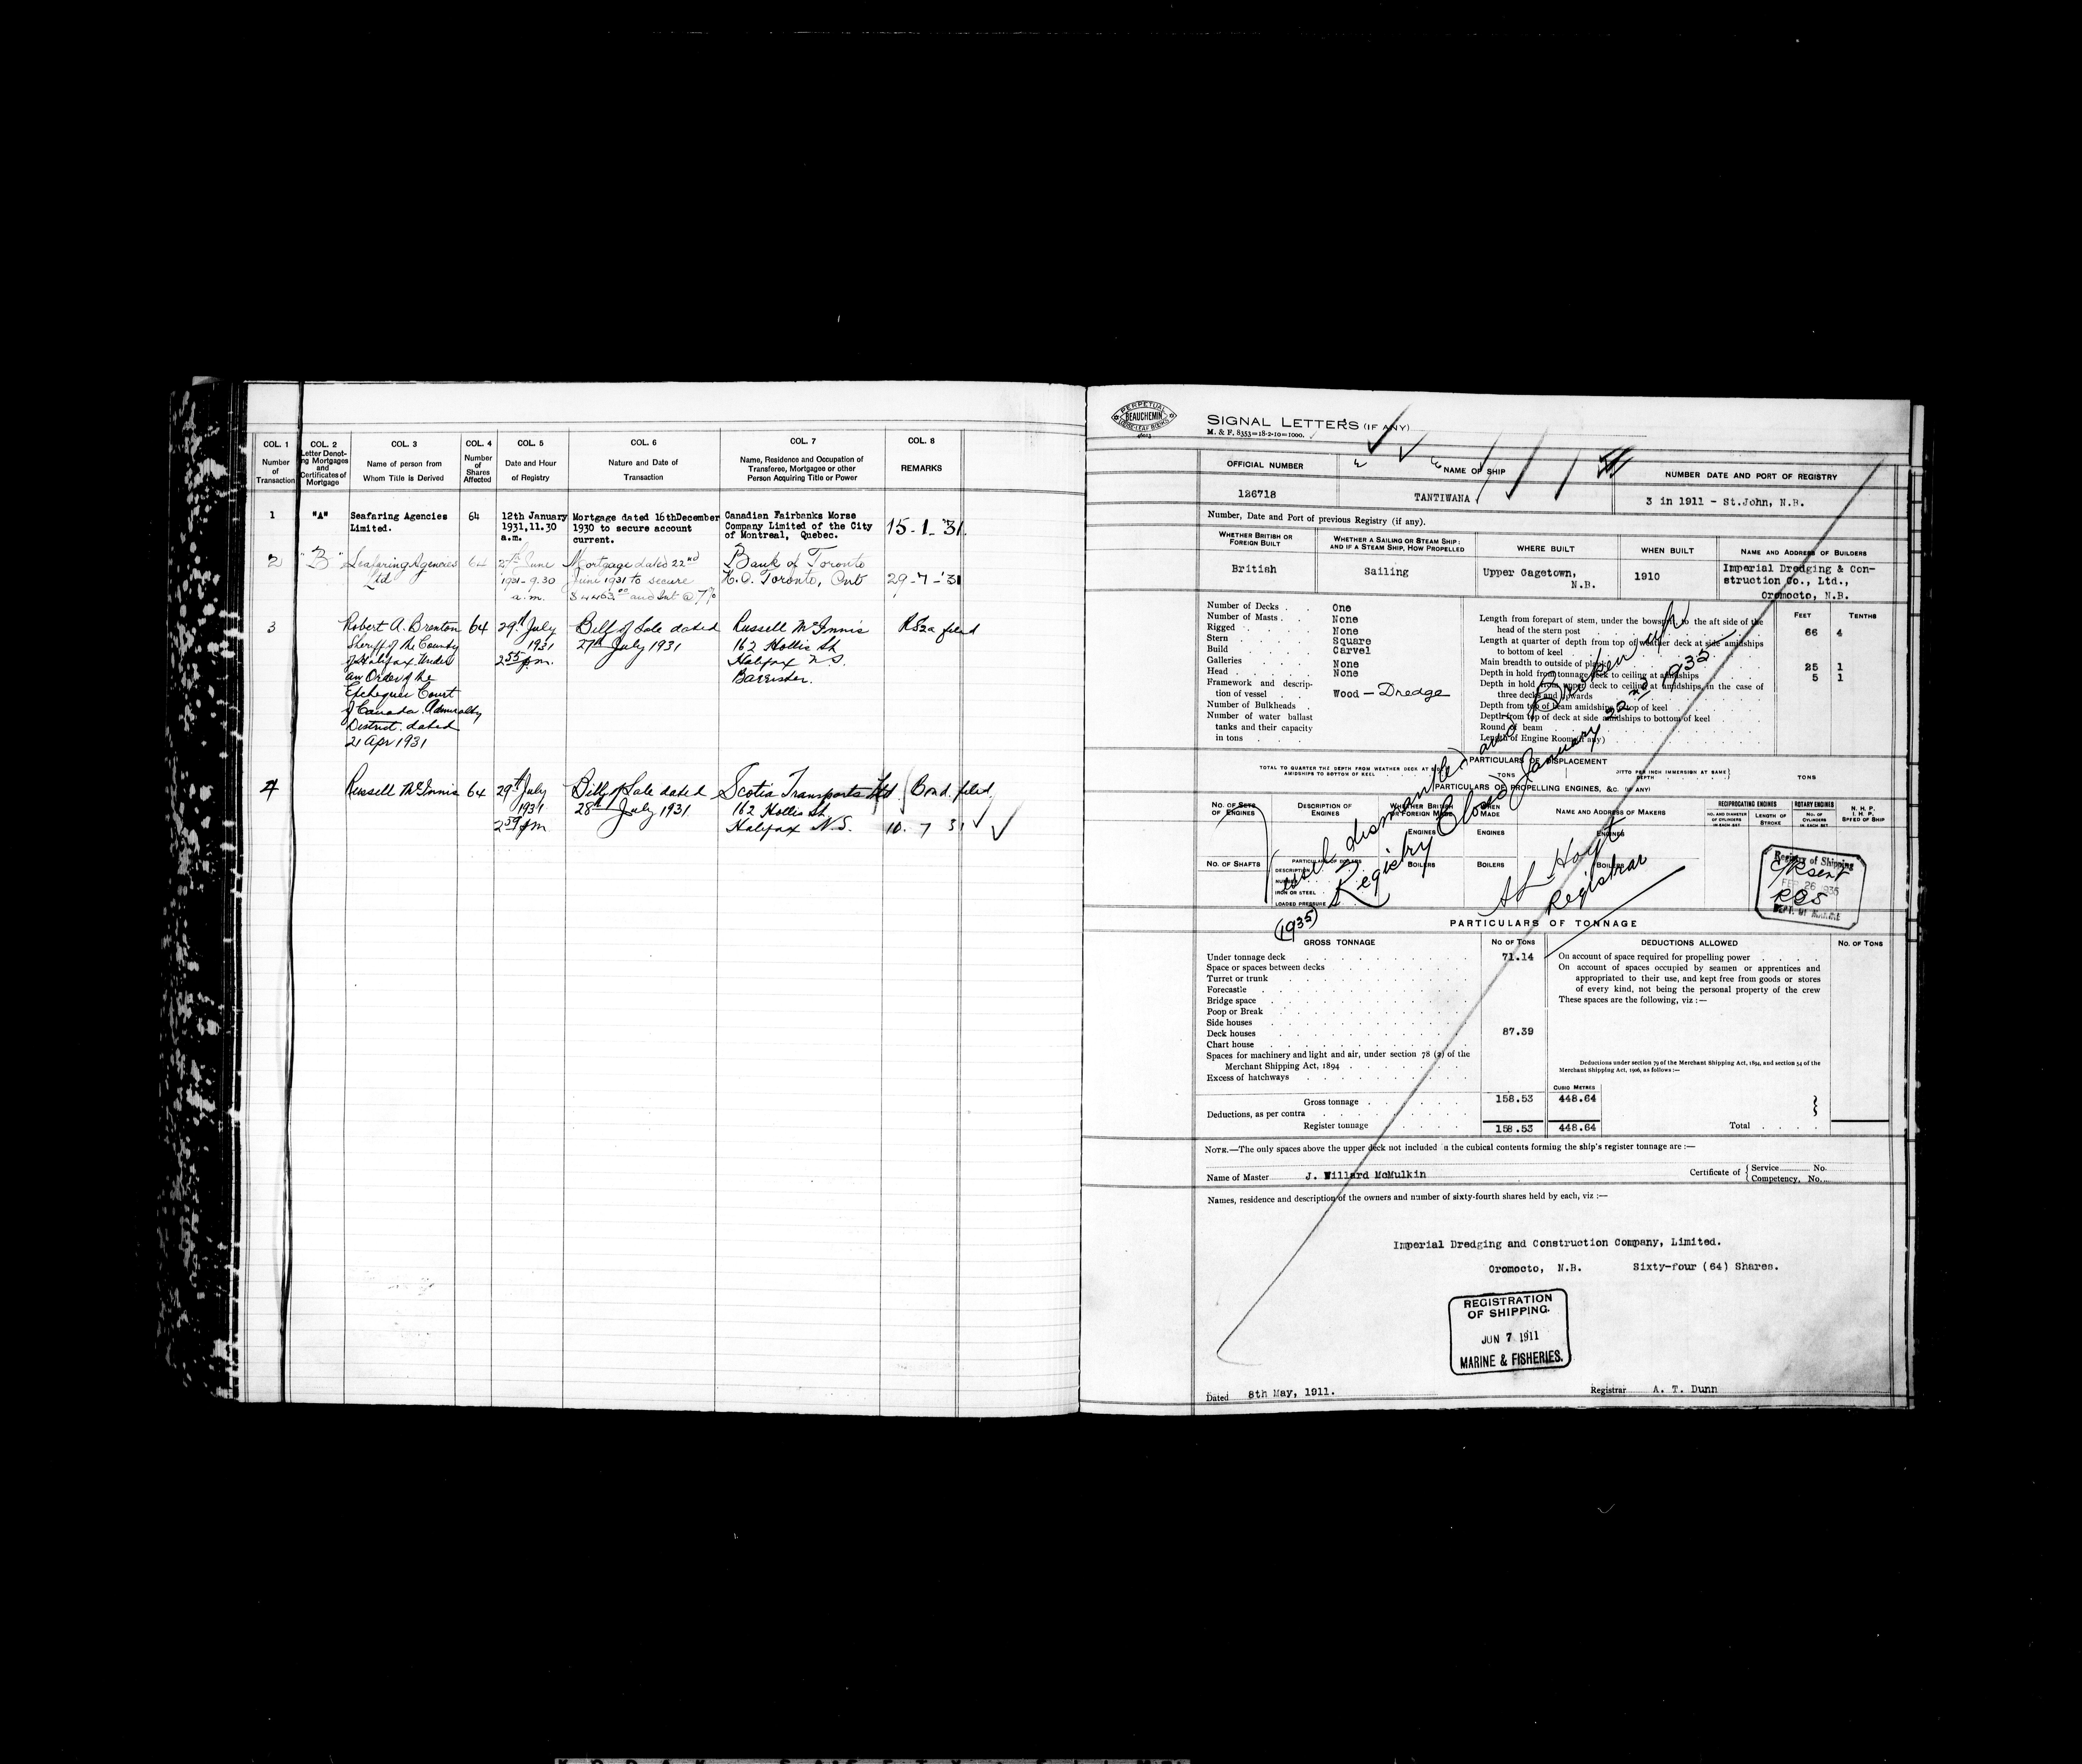 COL. 1 COL. 2 COL. 3 COL. 4 COL. 5 COL. 6 COL. 7 COL. 8
Number of Transaction
Letter Denoting Mortgages and Certificates of Mortgage
Name of person from Whom Title is Derived
Number of Shares Affected
Date and Hour of Registry
Nature and Date of Transaction
Name, Residence and Occupation of Transferee, Mortgagee or other Person Acquiring Title or Power
REMARKS
1 "A" Seafaring Agencies 64 12th January Mortgage dated 16thDecember Canadian Fairbanks Morse
Limited. 1931,11.30 1930 to secure account Company Limited of the City 15-1-'31.
a.m. current. of Montreal, Quebec.
2 "B" Seafaring Agencies 64 27th June Mortgage dated 22nd Bank of Toronto
Ltd 1931-9:30 June 1931 to secure H.O. Toronto, Ont 29-7-'31
a.m. $4463.00 and Int @ 7%
3 Robert A. Brenton 64 29th July Bill of Sale dated Russell McInnis RS2a filed
Sheriff of the County 1931 27th July 1931 162 Hollis St
of Halifax Under 2.55 p.m. Halifax N.S.
an Order of the Barrister.
Exchequer Court
of Canada Admiralty
District dated
21 Apr 1931
4 Russell McInnis 64 29th July Bill of Sale dated Scotia Transports Ltd Bond filed.
1931 28th July 1931 162 Hollis St
2.59 pm Halifax N.S. 10. 7 31
PERPETUAL
BEAUCHEMIN
LOOSE-LEAF BOOKS
SIGNAL LETTERS (IF ANY)
M. & F. 8353=18-2-10=1000.
OFFICIAL NUMBER NAME OF SHIP NUMBER DATE AND PORT OF REGISTRY
126718 TANTIWANA 3 in 1911 - St.John, N.B.
Number, Date and Port of previous Registry (if any).
WHETHER BRITISH OR FOREIGN BUILT
WHETHER A SAILING OR STEAM SHIP; AND IF A STEAM SHIP, HOW PROPELLED
WHERE BUILT
WHEN BUILT
NAME AND ADDRESS OF BUILDERS
British Sailing Upper Gagetown, 1910 Imperial Dredging & Con-
N.B. struction Co., Ltd.,
Oromocto, N.B.
Number of Decks One
Number of Masts None
Rigged None
Stern Square
Build Carvel
Galleries None
Head None
Framework and description of vessel Wood - Dredge
Number of Bulkheads
Number of water ballast
tanks and their capacity
in tons
FEET TENTHS
Length from forepart of stem, under the bowsprit, to the aft side of the
head of the stern post 66 4
Length at quarter of depth from top of weather deck at side amidships
to bottom of keel
Main breadth to outside of plank 25 1
Depth in hold from tonnage deck to ceiling at amidships 5 1
Depth in hold from upper deck to ceiling at amidships, in the case of
three decks and upwards
Depth from top of beam amidships to top of keel
Depth from top of deck at side amidships to bottom of keel
Round of beam
Length of Engine Room (if any)
Vessel dismantled and Broken up (1935)
Registry Closed January 22nd 1935
Registrar
PARTICULARS OF DISPLACEMENT
TOTAL TO QUARTER THE DEPTH FROM WEATHER DECK AT SIDE AMIDSHIPS TO BOTTOM OF KEEL TONS
DITTO PER INCH IMMERSION AT SAME DEPTH TONS
PARTICULARS OF PROPELLING ENGINES, &C. (IF ANY)
NO. OF SETS OF ENGINES
DESCRIPTION OF ENGINES
WHETHER BRITISH OR FOREIGN MADE
WHEN MADE
NAME AND ADDRESS OF MAKERS
RECIPROCATING ENGINES
NO. AND DIAMETER OF CYLINDERS IN EACH SET
LENGTH OF STROKE
ROTARY ENGINES
NO. OF CYLINDERS IN EACH SET
N. H. P.
I. H. P.
SPEED OF SHIP
ENGINES ENGINES ENGINES
NO. OF SHAFTS
PARTICULARS OF BOILERS
DESCRIPTION
NUMBER
IRON OR STEEL
LOADED PRESSURE
BOILERS BOILERS BOILERS
Registry of Shipping
FEB 26 1935
DEPT. OF MARINE
PARTICULARS OF TONNAGE
GROSS TONNAGE NO OF TONS DEDUCTIONS ALLOWED NO. OF TONS
Under tonnage deck 71.14
Space or spaces between decks
Turret or trunk
Forecastle
Bridge space
Poop or Break
Side houses
Deck houses 87.39
Chart house
Spaces for machinery and light and air, under section 78 (2) of the
Merchant Shipping Act, 1894
Excess of hatchways
On account of space required for propelling power
On account of spaces occupied by seamen or apprentices and
appropriated to their use, and kept free from goods or stores
of every kind, not being the personal property of the crew
These spaces are the following, viz :—
Deductions under section 79 of the Merchant Shipping Act, 1894, and section 54 of the
Merchant Shipping Act, 1906, as follows :—
CUBIC METRES
Gross tonnage 158.53 448.64
Deductions, as per contra
Register tonnage 158.53 448.64 Total
NOTE.—The only spaces above the upper deck not included in the cubical contents forming the ship's register tonnage are :—
Name of Master J. Willard McMulkin Certificate of Service No.
Competency, No.
Names, residence and description of the owners and number of sixty-fourth shares held by each, viz :—
Imperial Dredging and Construction Company, Limited.
Oromocto, N.B. Sixty-four (64) Shares.
REGISTRATION
OF SHIPPING.
JUN 7 1911
MARINE & FISHERIES.
Dated 8th May, 1911. Registrar A. T. Dunn